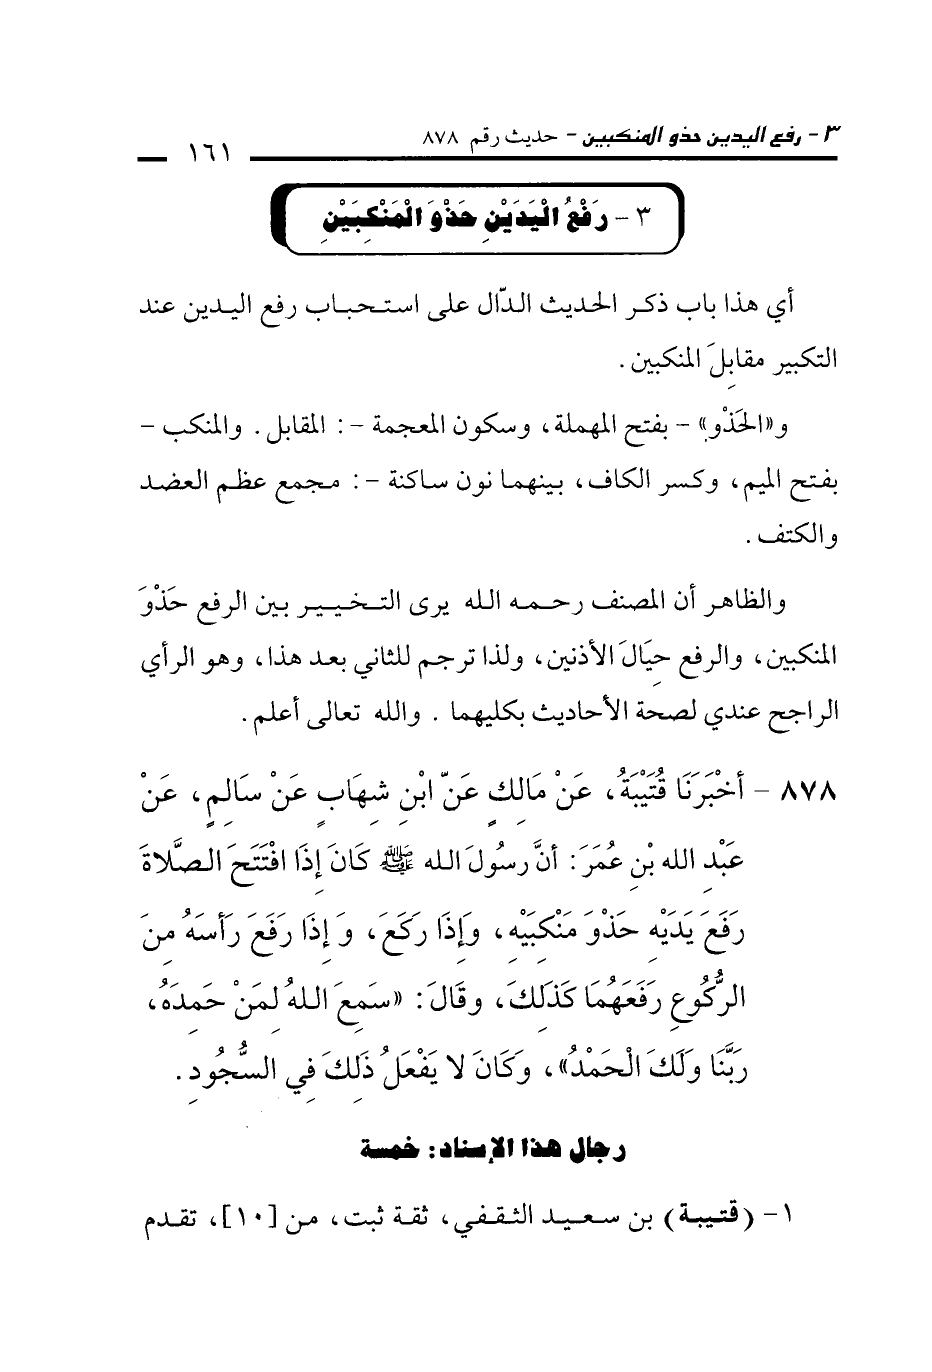 ٣- رفع اليدين حذو المنكبين - حديث رقم ٨٧٨
١٦١
٣ - رَفْعُ الْيَدَيْنِ حَذْوَ الْمَنْكِبَيْنِ
أي هذا باب ذكر الحديث الدّال على استحباب رفع اليدين عند
التكبير مقابِلَ المنكبين .
و«الحَذْو» - بفتح المهملة، وسكون المعجمة -: المقابل . والمنكب -
بفتح الميم، وكسر الكاف، بينهما نون ساكنة -: مجمع عظم العضد
والكتف .
والظاهر أن المصنف رحمه الله يرى التخيير بين الرفع حَذْوَ
المنكبين، والرفع حِيَالَ الأذنين، ولذا ترجم للثاني بعد هذا، وهو الرأي
الراجح عندي لصحة الأحاديث بكليهما . والله تعالى أعلم.
٨٧٨ - أخْبَرَنَا قُتَيْبَةُ، عَنْ مَالِكٍ عَنّ ابْنِ شِهَابٍ عَنْ سَالِمٍ، عَنْ
عَبْدِ الله بْنِ عُمَرَ: أنَّ رسُولَ الله ﷺ كَانَ إذَا افْتَتَحَ الصَّلاةَ
رَفَعَ يَدَيْهِ حَذْوَ مَنْكِبَيْهِ، وَإذَا رَكَعَ، وَإذَا رَفَعَ رَأسَهُ مِنَ
الرُّكُوعِ رَفَعَهُمَا كَذَلِكَ، وقَالَ: «سَمِعَ اللهُ لِمَنْ حَمِدَهُ،
رَبَّنَا وَلَكَ الْحَمْدُ»، وَكَانَ لا يَفْعَلُ ذَلِكَ فِي السُّجُودِ .
رجال هذا الإسناد: خمسة
١- (قتيبة) بن سعيد الثقفي، ثقة ثبت، من [١٠]، تقدم